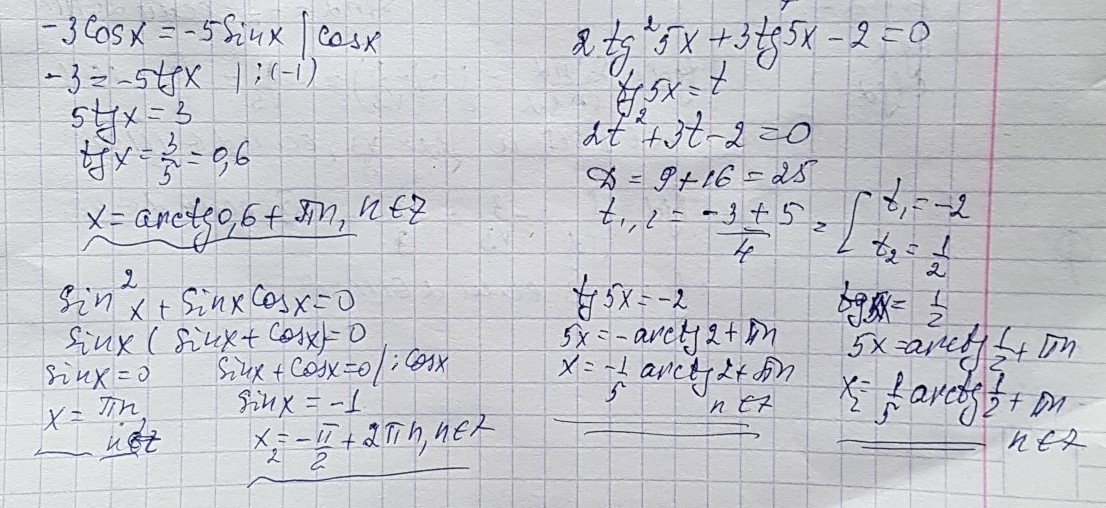 -3cosx = -5sinx | cosx
-3 = -5tgx | :(-1)
5tgx = 3
tgx = 3/5 = 0,6
x = arctg0,6 + πn, n∈Z
sin²x + sinxcosx = 0
sinx(sinx + cosx) = 0
sinx = 0 sinx + cosx = 0 / : cosx
x = πn, sinx = -1
n∈Z x₂ = -π/2 + 2πn, n∈Z
2tg²5x + 3tg5x - 2 = 0
tg5x = t
2t² + 3t - 2 = 0
D = 9 + 16 = 25
t₁,₂ = (-3 ± 5)/4 = [ t₁ = -2
t₂ = 1/2
tg5x = -2
5x = -arctg2 + πn
x = -1/5 arctg2 + πn
n∈Z
tg5x = 1/2
5x = arctg 1/2 + πn
x₂ = 1/5 arctg 1/2 + πn
n∈Z